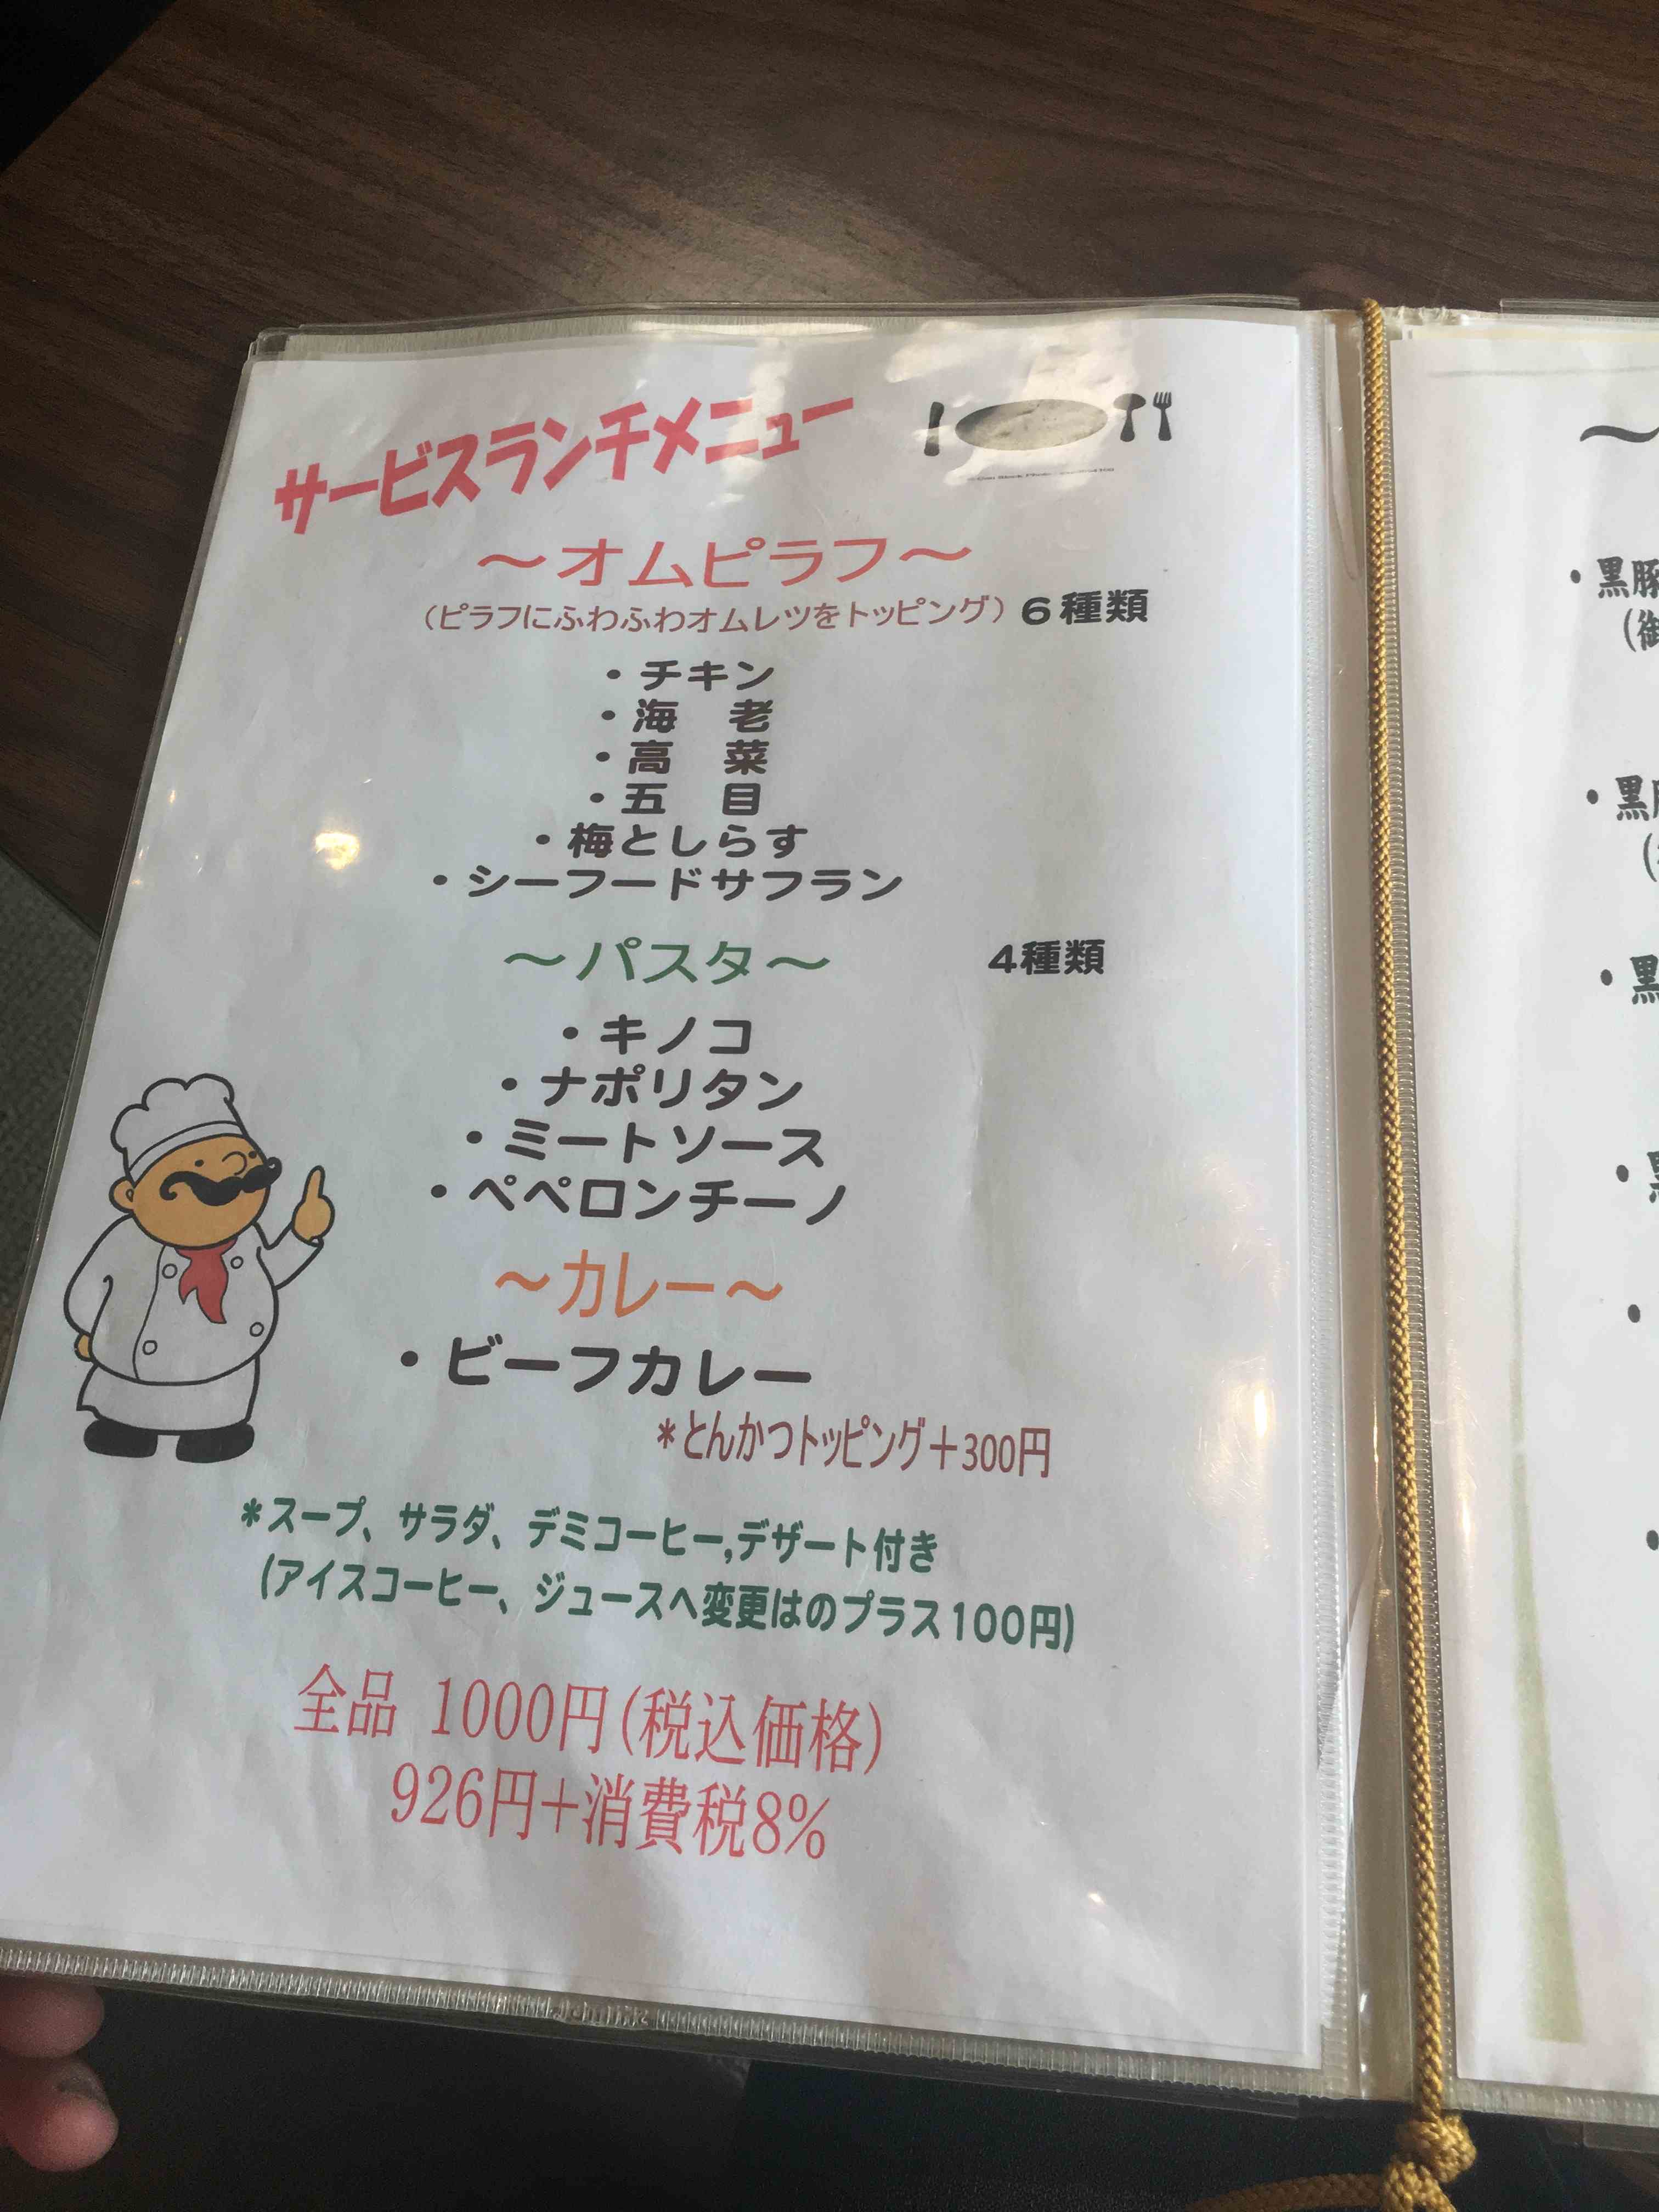 サービスランチメニュー
～オムピラフ～
（ピラフにふわふわオムレツをトッピング）6種類
・チキン
・海　老
・高　菜
・五　目
・梅としらす
・シーフードサフラン
～パスタ～ 4種類
・キノコ
・ナポリタン
・ミートソース
・ペペロンチーノ
～カレー～
・ビーフカレー
＊とんかつトッピング＋300円
＊スープ、サラダ、デミコーヒー,デザート付き
(アイスコーヒー、ジュースへ変更はのプラス100円)
全品 1000円(税込価格)
926円+消費税8%
～
・黒豚
(御
・黒
(
・黒
・黒